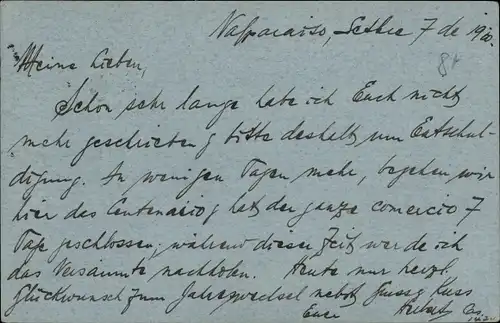 Valparaiso, Setbre 7 de 1910.
Meine Lieben,
Schon sehr lange habe ich Euch nicht
mehr geschrieben & bitte deshalb um Entschul-
digung. In wenigen Tagen mehr, begehen wir
hier das Centenario & hat der ganze comercio 7
Tage geschlossen; während dieser Zeit werde ich
das Versäumte nachholen. Heute nur herzl.
Glückwunsch zum Jahreswechsel nebst Gruss & Kuss
Euer